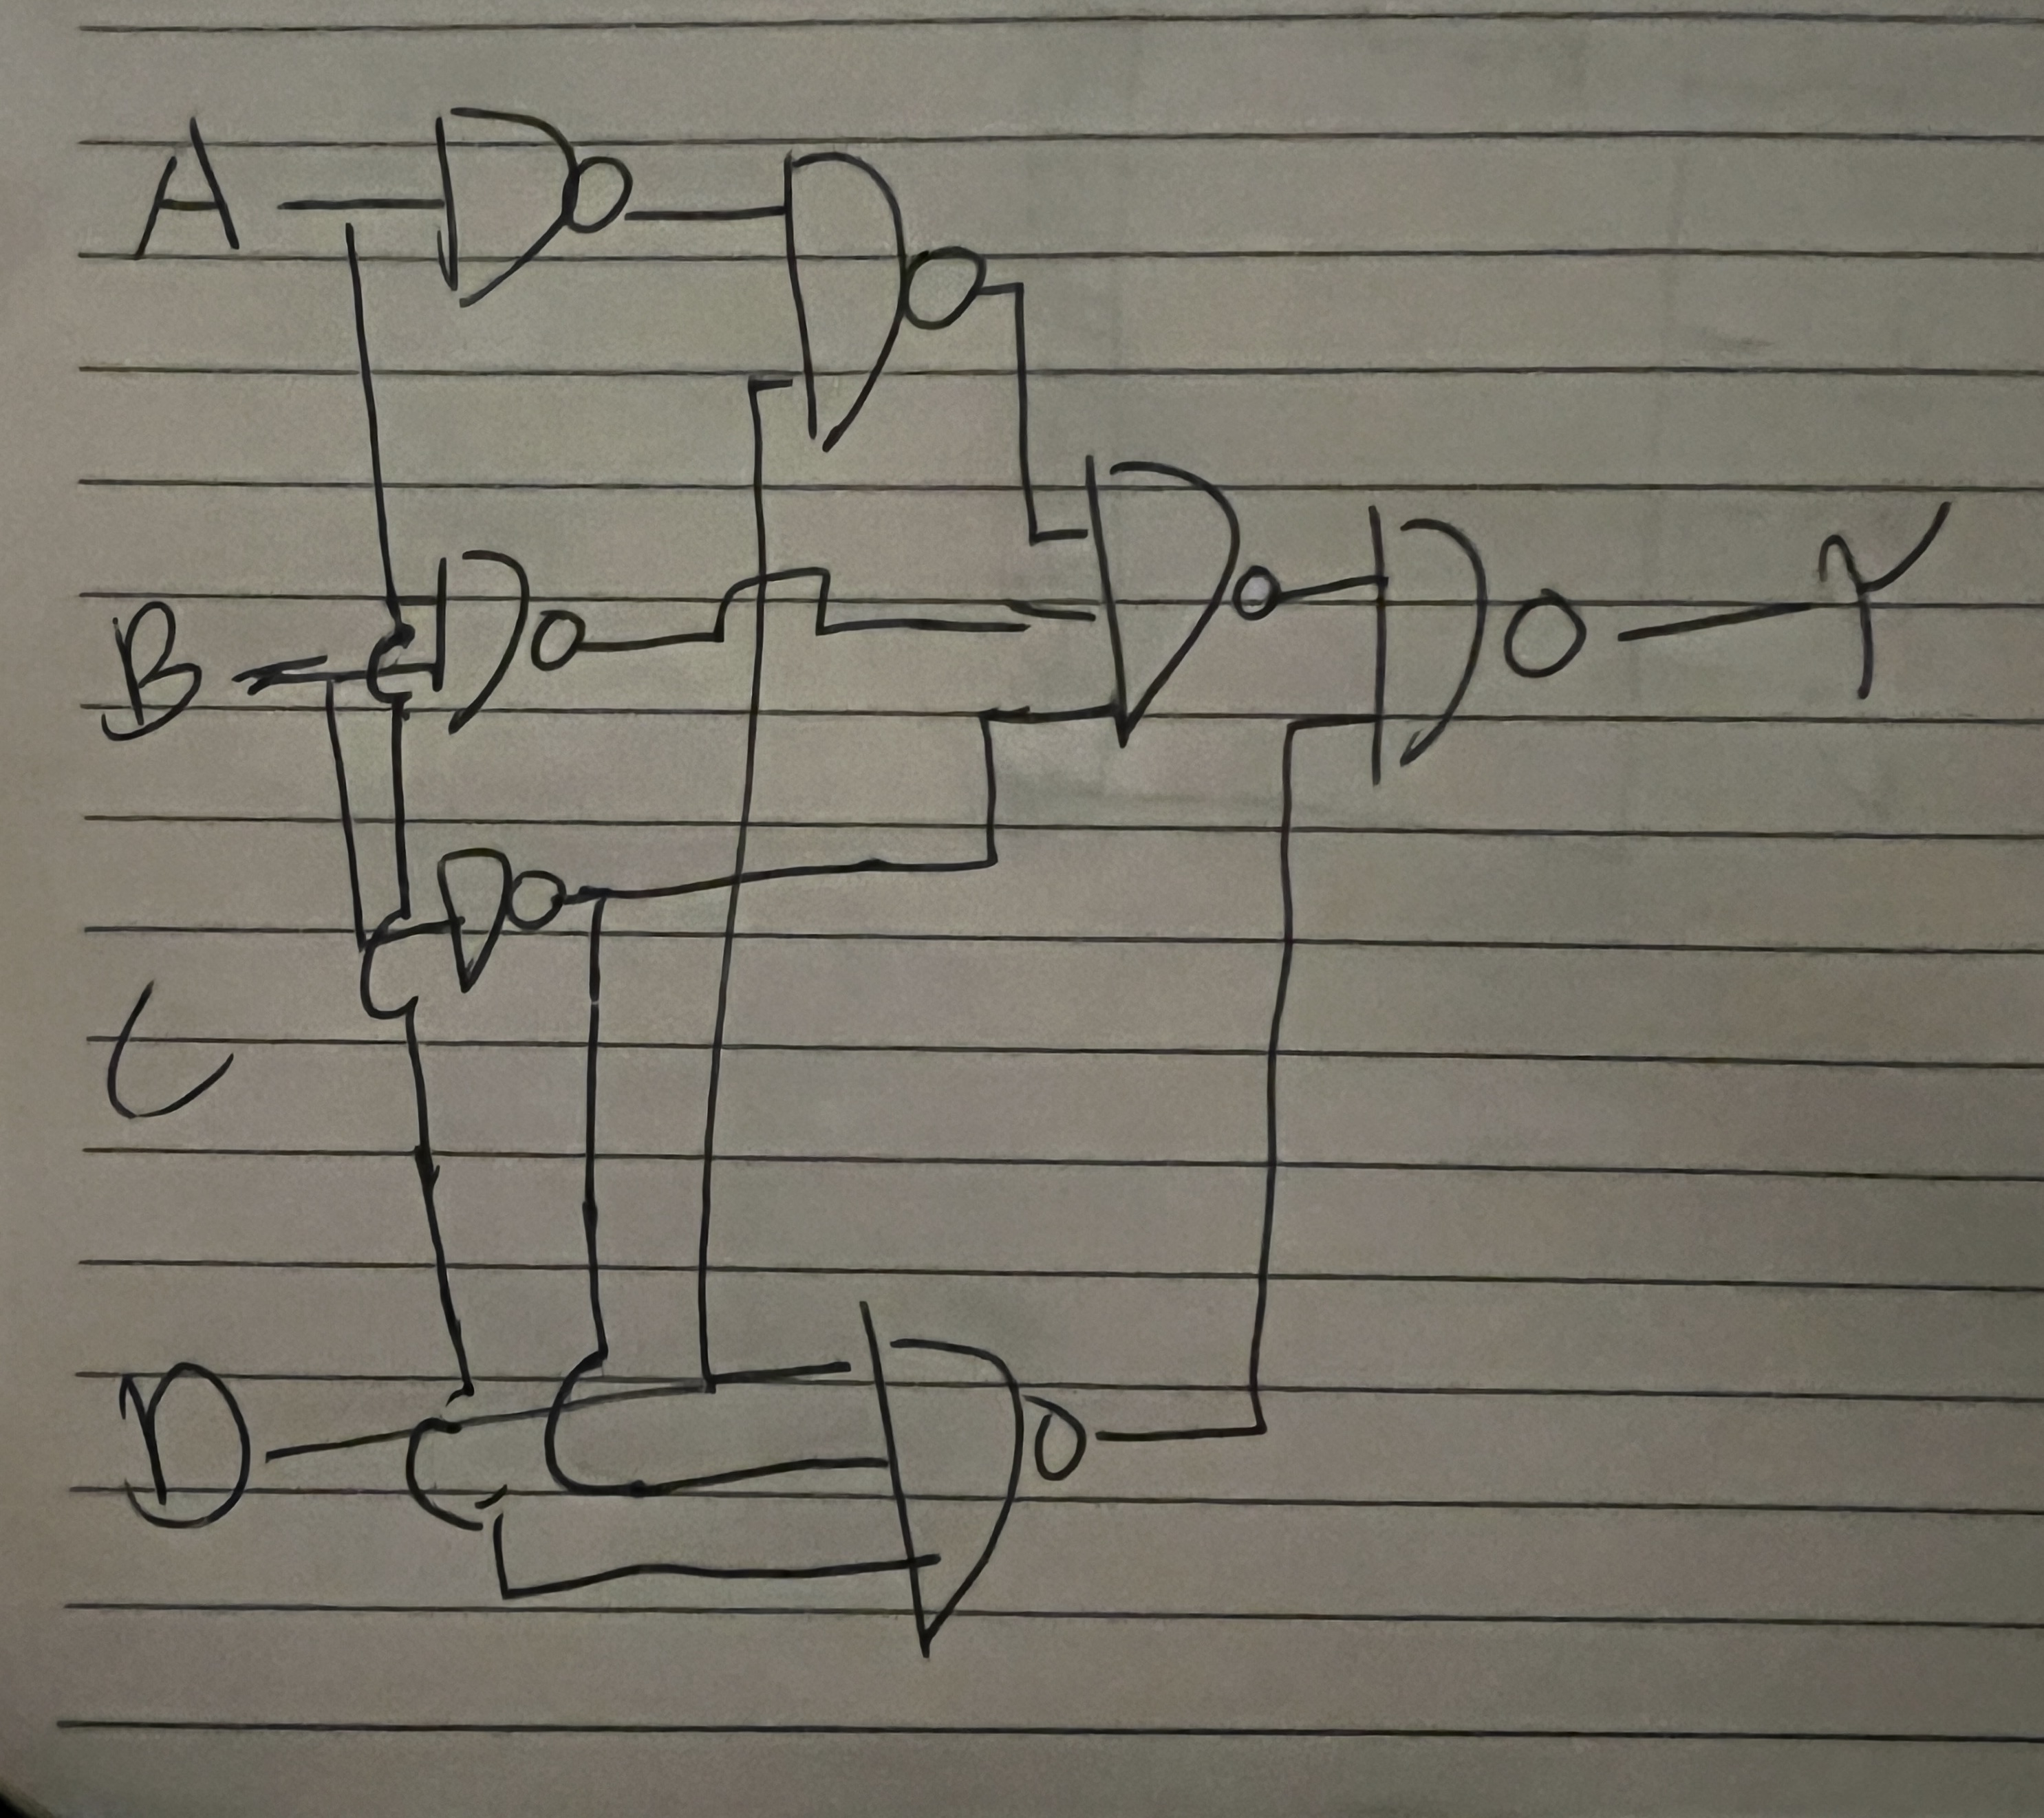 A
B
C
D
Y